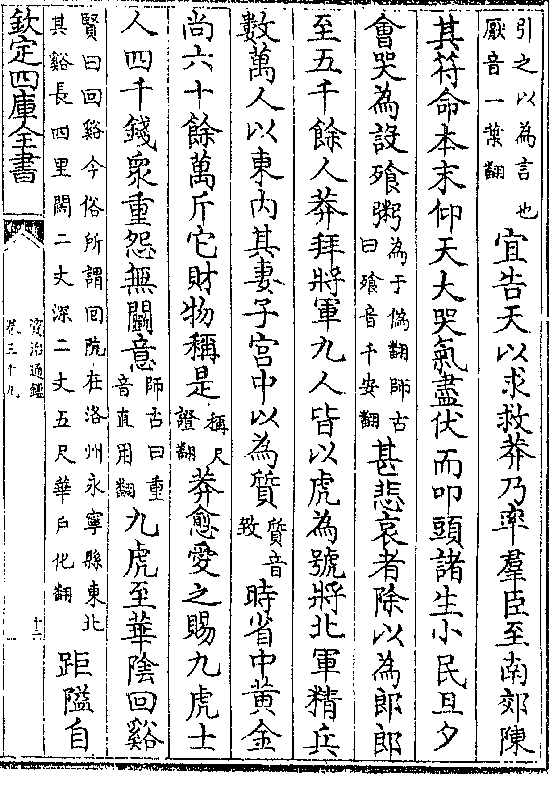 引之以為言也
厭音一葉翻
宜告天以求救莽乃率羣臣至南郊陳
其符命本末仰天大哭氣盡伏而叩頭諸生小民旦夕
會哭為設飱粥
為于偽翻師古
曰飱音千安翻
甚悲哀者除以為郎郎
至五千餘人莽拜將軍九人皆以虎為號將北軍精兵
數萬人以東内其妻子宫中以為質
質音
致
時省中黄金
尚六十餘萬斤它財物稱是
稱尺
證翻
莽愈愛之賜九虎士
人四千錢衆重怨無鬭意
師古曰重
音直用翻
九虎至華陰回谿
賢曰回谿今俗所謂回阬在洛州永寧縣東北
其谿長四里闊二丈深二丈五尺華戶化翻
距隘自
欽定四庫全書
資治通鑑
卷三十九
十二